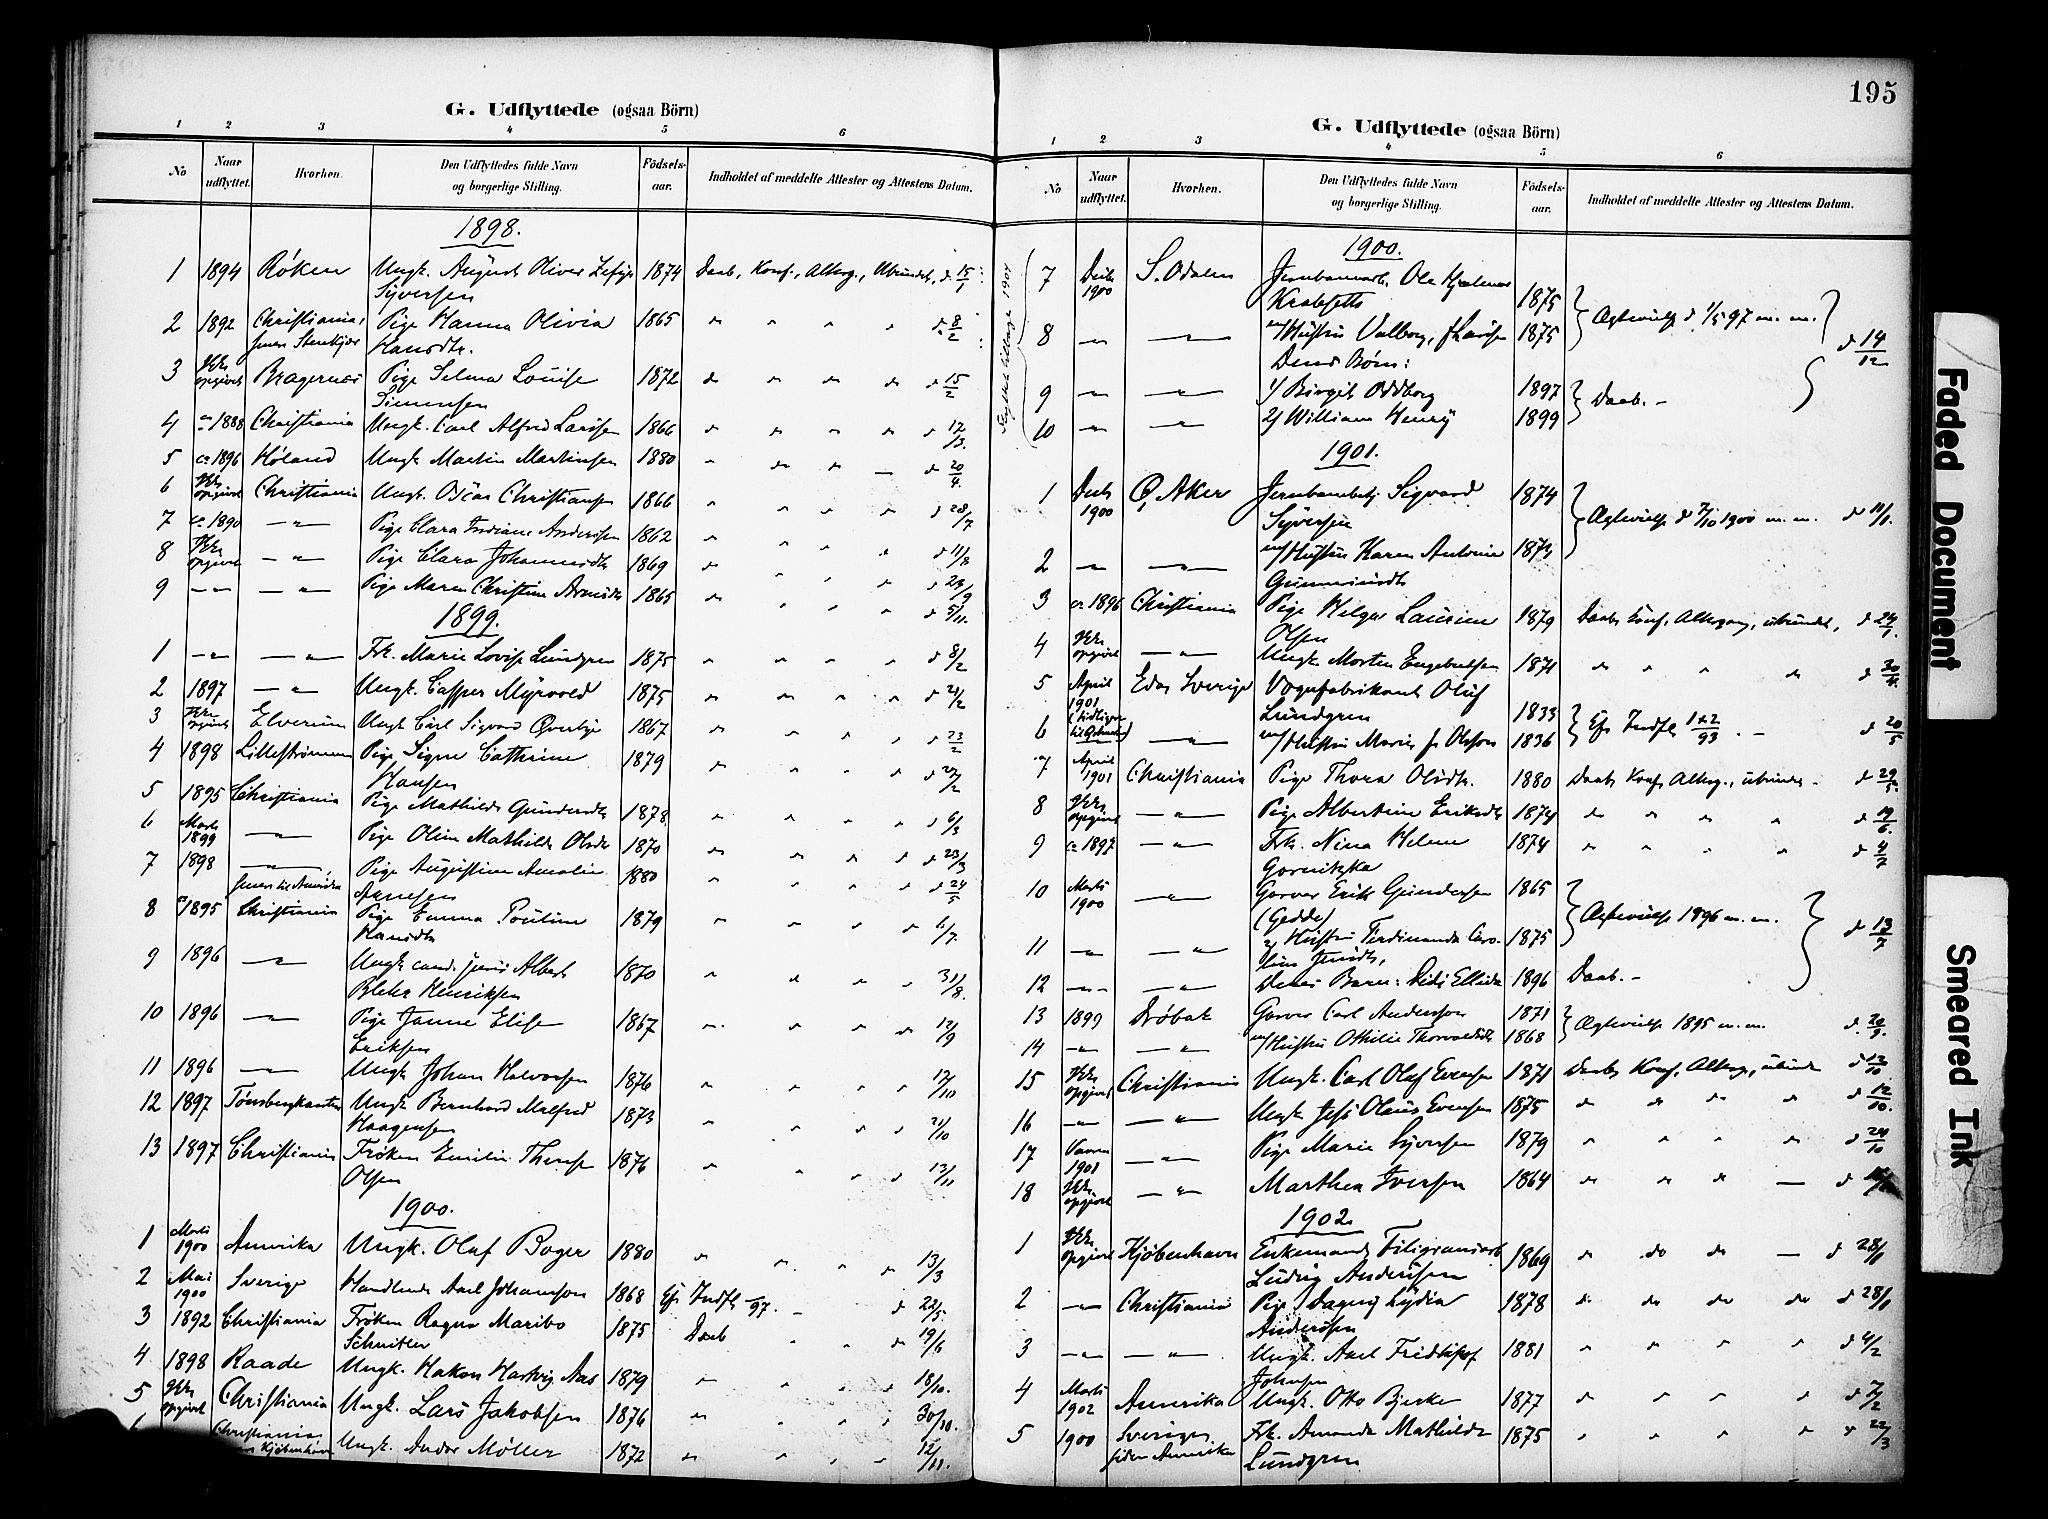 G. Udflyttede (ogsaa Börn)
1 2 3 4 5 6
No
Naar udflyttet.
Hvorhen.
Den Udflyttedes fulde Navn og borgerlige Stilling.
Födsels-aar.
Indholdet af meddelte Attester og Attestens Datum.
1898.
1 1894 Røken Ungk. August Oliver 1874 Daab, Konf., Alterg., Ubundet, d. 15/1
Syversen
2 1892 Christiania, Pige Hanna Olivia 1865 " " " " d. 8/2
Hansdtr.
3 Ikke opgivet Bragernæs Pige Selma Louise 1872 do " " " d 15/2
Simensen
4 1888 Christiania Ungk. Carl Alfred Larssen 1866 " " " " d 12/3.
5 ca 1896 Høland Ungk Martin Martinsen 1880 " " " — d 20/4.
6 Ikke opgivet Christiania Ungk. Oscar Christiansen 1866 " " " " d 28/7
7 ca 1890 — " — Pige Clara Indiane Anderssen 1862 " " " " d 11/8
8 Ikke opgivet — " — Pige Clara Johannesdtr 1869 " " " " d 23/9
9 — " — — " — Pige Maren Christine 1865 " " " " d 5/11.
1899.
1 — " — — " — Frk. Marie Lovise Lundgren 1875 " " " " d 8/2
2 1897 — " — Ungk. Casper Myrvold 1875 " " " " d 21/2
3 Ikke opgivet Elverum Ungk Carl Sigvard 1867 " " " " d 23/2
4 1898 Lillestrømmen Pige Signe Cathrine 1879 " " " " d 27/2
Hansen
5 1895 Christiania Pige Mathilde Gundersdtr 1878 " " " " d 6/3
6 Marts 1899 — " — Pige Oline Mathilde Olsdtr 1870 " " " " d 23/3
7 1898 — " — Pige Augustine Amalie 1880 " " " " d 24/5
Arnesen
8 ca 1895 Christiania Pige Emma Pouline 1879 " " " " 6/7.
Hansdtr
9 1896 — " — Ungk cand. juris Albert 1870 " " " " 31/8.
Blehr Henriksen
10 1896 — " — Pige Janne Elise 1867 " " " " 12/9
Eriksen
11 1896 — " — Ungk Johan Halvorsen 1876 " " " " 12/10
12 1897 Ungk Bernhard 1873 " " " " 21/10
Haagensen
13 1897 Christiania Frøken Emilie Therese 1876 " " " " 13/11
Olsen
1900.
1 Marts 1900 Amerika Ungk. Olaf Boger 1880 " " " " 13/3
2 Mai 1900 Sverige Handlende Axel Johannson 1868 Ef. Indfl. /97. — d 22/5.
3 1892 Christiania Frøken Ragna Maribo 1875 Daab " " 19/6
Schnitler
4 1898 Raade Ungk. Hakon Hartvig Aas 1879 " " " " 18/10.
5 Ikke opgivet Christiania Ungk. Lars Jakobsen 1876 " " " " 30/10.
Christiania, Kjøbenhavn Ungk. Møller 1872 " " " " 12/11.
195
G. Udflyttede (ogsaa Börn)
1 2 3 4 5 6
No
Naar udflyttet.
Hvorhen.
Den Udflyttedes fulde Navn og borgerlige Stilling.
Födsels-aar.
Indholdet af meddelte Attester og Attestens Datum.
1900.
7 Decbr 1900 S. Odalen Jernbanearb. Ole 1875
8 — " — — " — m/Hustru Valborg, f. Larssen 1875 Ægtevielse d. 1/5 97 m. m. d 14/12
Deres Børn:
9 — " — — " — 1/ Birgit Oddborg 1897 Daab. —
10 — " — — " — 2/ William Henry 1899
1901.
1 Decbr 1900 Ø. Aker Jernbanebetj. Sigvard 1874
Syversen Ægtevielse d 7/10 1900 m. m. d 11/1.
2 — " — — " — m/Hustru Karen Antonie 1873
3 ca 1896 Christiania Pige Helga Laurine 1879 Daab, Konf., Altergang, ubundet, d 24/1.
Olsen
4 Ikke opgivet — " — Ungk Morten Engebretsen 1871 " " " " d 30/4.
5 April 1901 Eda Sverige Vognfabrikant Oluf
Lundgren 1833 Ef. Indfl. 1 & 2/93. — d 20/5
6 — " — m/Hustru Maria f. Olsson 1836
7 April 1901 Christiania Pige Thora Olsdtr. 1880 Daab, Konf., Alterg., ubundet — d 29/5.
8 Ikke opgivet — " — Pige Albertine Eriksdtr 1874 " " " " d 19/6.
9 ca 1897 — " — Frk. Nina Helene 1874 " " " " d 4/7
Gornitzka
10 Marts 1900 — " — Garver Erik Gundersen 1865
(Gedde) Ægtevielse 1896 m. m. d 13/7
11 — " — — " — m/ Hustru Ferdinanda Caro- 1875
12 — " — — " — Deres Barn: Didi Ellida 1896 Daab. —
13 1899 Drøbak Garver Carl Andersson 1871 Ægtevielse 1895 m. m. d. 20/9.
14 — " — — " — m/Hustru Othilie Thorvaldsdtr 1868
15 Ikke opgivet Christiania Ungk. Carl Olaf Evensen 1871 Daab, Konf., Alterg., ubundet d 12/10
16 — " — — " — Ungk Olaus Evensen 1875 " " " " d 12/10.
17 Vaaren 1901 — " — Pige Marie Syversen 1879 " " " " d 24/10
18 Ikke opgivet — " — Marthea Iversen 1864 " " " — d
1902.
1 Ikke opgivet Kjøbenhavn Enkemand Filigransarb. 1869 " do do — d 28/1
Ludvig Anderssen
2 — " — Christiania Pige Dagny Lydia 1878 do do do do d 28/1
Anderssen
3 — " — — " — Ungk. Axel Fridthjof 1881 " " " " d 4/2
Johnsen
4 Marts 1902 Amerika Ungk. Otto Bjerke 1877 " " " " d 7/2
5 1900 Sverige, siden Amerika Frk. Amanda Mathilde 1875 " " " " d 22/3
Lundgren
Faded Document
Smeared Ink